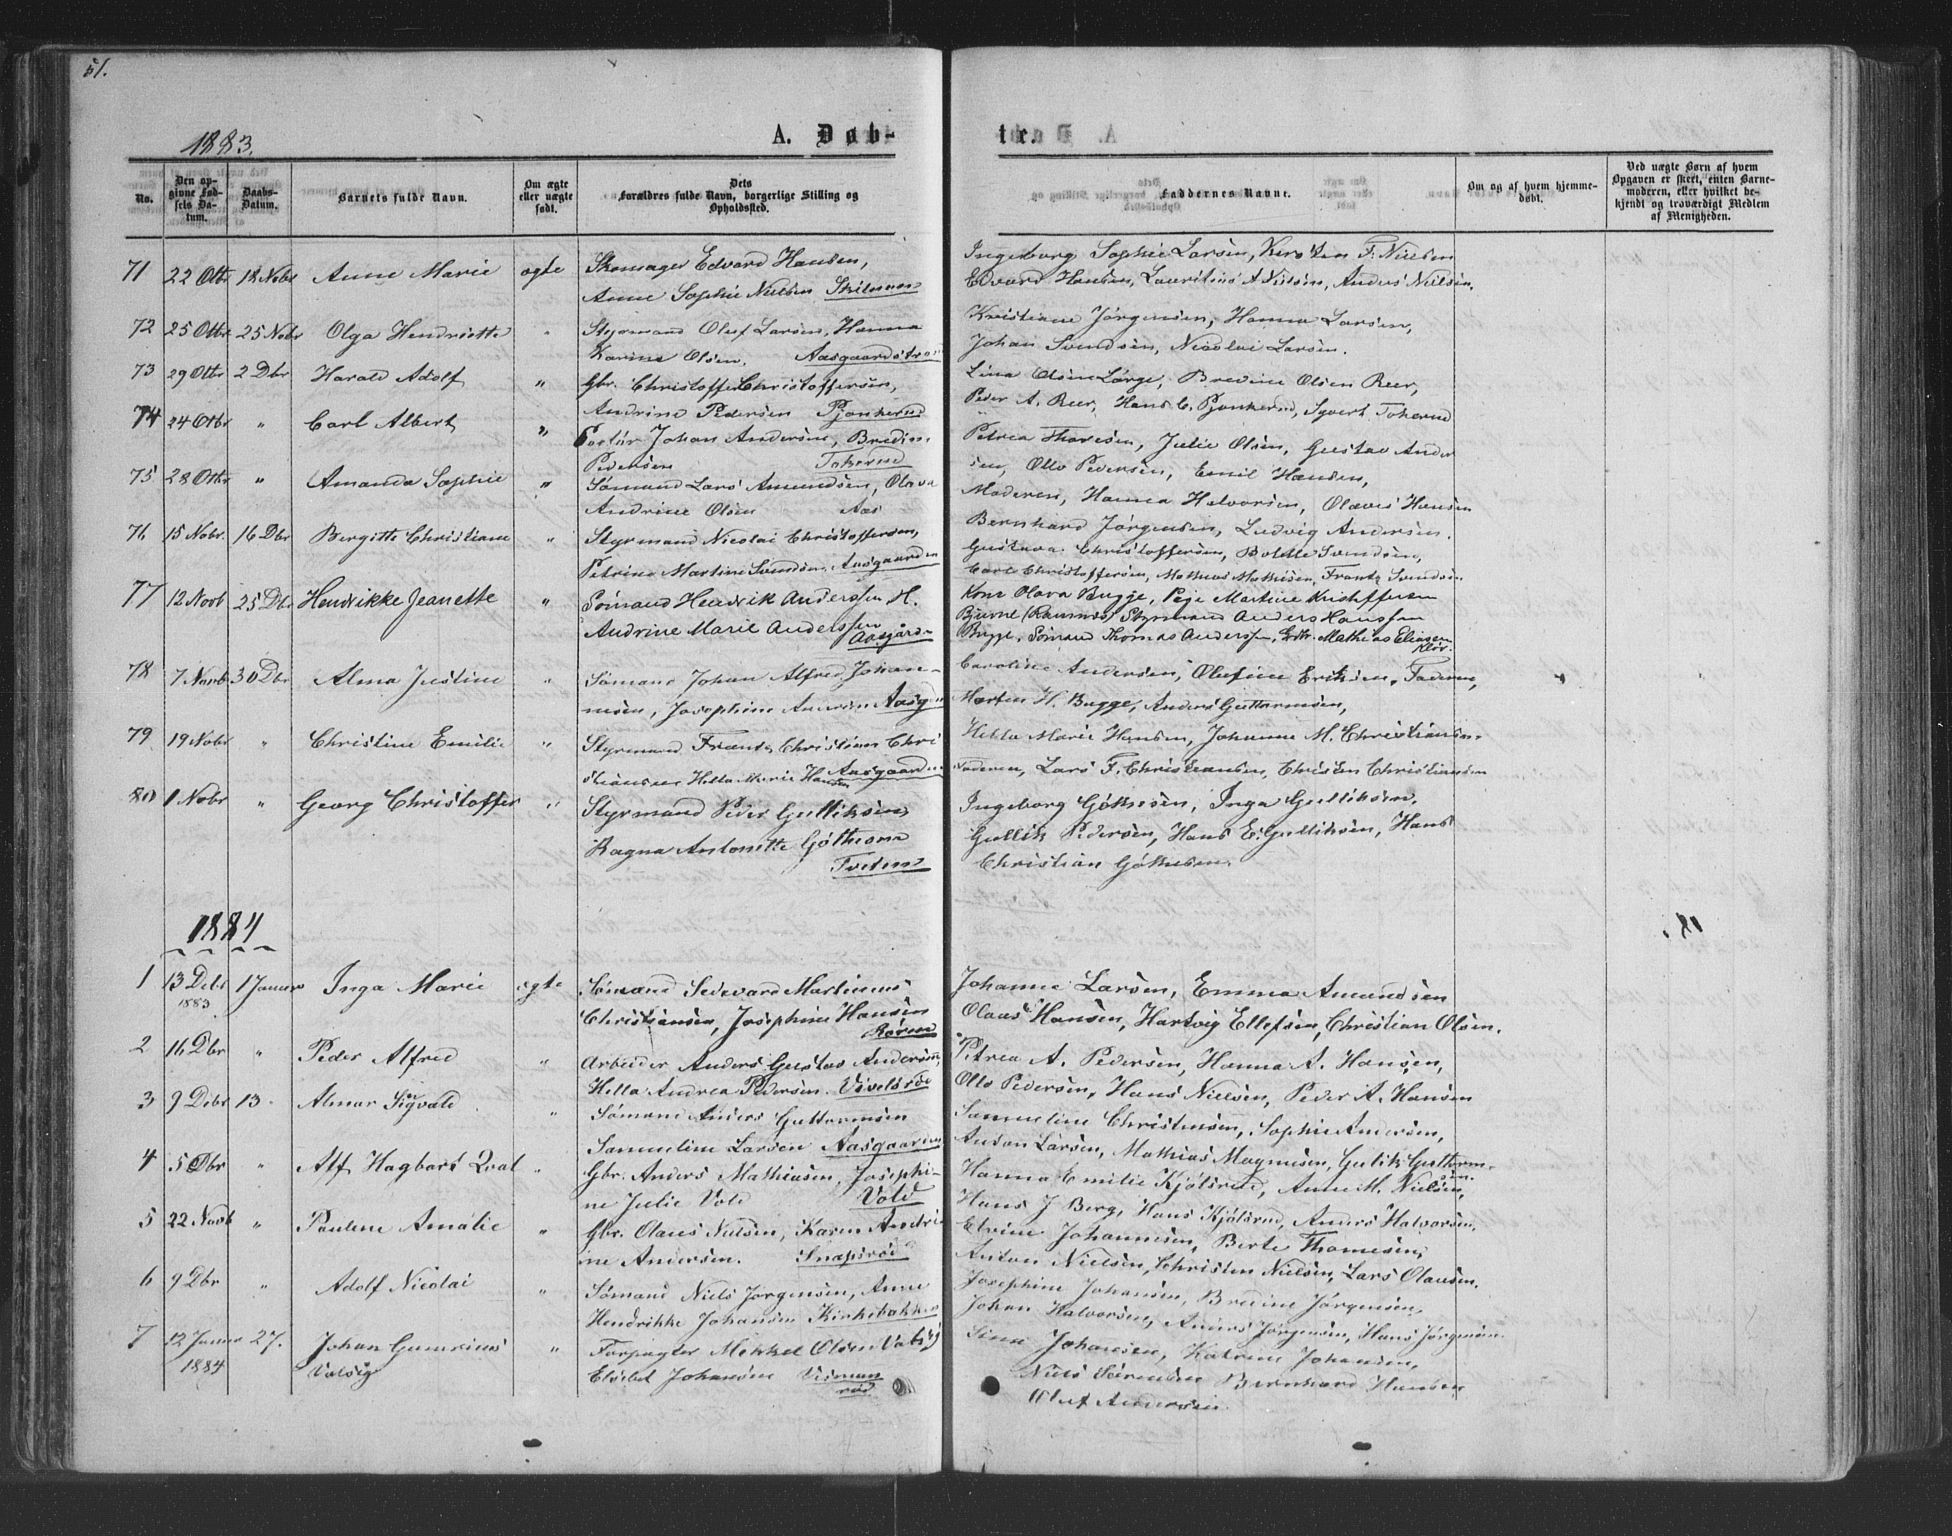 51.
1883.
A. Døb-
No.
Den opgivne Fødsels Datum.
Daabs-Datum.
Barnets fulde Navn.
Om ægte eller uægte født.
Dets Forældres fulde Navn, borgerlige Stilling og Opholdssted.
71 22 Otbr 18 Nobr Anne Marie ægte Skomager Edvard Hansen,
Anne Sophie Nielsen
72 25 Otbr 25 Nobr Olga Hendriette " Styrmand Oluf Larsen, Hanna
Karine Olsen. Aasgaardstran
73 29 Otbr 2 Dbr Harald Adolf " Gbr. Christoffer Christoffersen,
Andrine Pedersen Pjonkerud
74 24 Otbr " Carl Albert " Johan Andersen, Bredine
Pedersen Tokerud
75 28 Otbr " Amanda Sophie " Sømand Lars Amundsen, Olava
Andrine Olsen Aas
76 15 Nobr. 16 Dbr Bergitte Christiane " Styrmand Nicolai Christoffersen,
Petrine Martine Svendsen, Aasgaarden
77 12 Novb 25 Db. Hendrikke Jeanette " Sömand Hendrik Anderssen H.
Andrine Marie Anderssen
Aasgårdn
78 7 Novb 30 Dbr Alma Justine " Sømand Johan Alfred Johan-
nesen, Josephine Andersen Aasgdn
79 19 Nobr " Christine Emilie " Styrmand Frants Christinus Chri
stiansen Helta Marie Hansen Aasgaarden
80 1 Nobr " Georg Christoffer " Styrmand Peder Gulliksen
Ragna Antonette Göthesen
Tveten
1884
1 13 Debr 1883 1 Januar Inga Marie ægte Sømand Sedevard Martinius
Christiansen, Josephine Hansen
Rören
2 16 Dbr " Peder Alfred " Arbeider Anders Gustav Andersen,
Helta Andrea Pedersen.
3 9 Debr 13. Almar Sigvald " Sømand Anders Guttormsen
Samueline Larsen Aasgaarden
4 5 Dbr " Alf Hagbart Qval " Gbr. Anders Mathiasen, Josephi-
ne Julie Vold Vold
5 22 Novb " Pauline Amalie " Gbr. Olaus Nielsen, Karen Andri
ne Andersen. Snapsrød
6 9 Dbr " Adolf Nicolai " Sømand Niels Jørgensen, Anne
Hendrikke Johansen Kirkebakken
7 12 Januar 1884 27. Johan Gunerius Valsig " Forpagter Mikkel Olsen Valsig
Elsebet Johansen
tre.
Faddernes Navne.
Om og af hvem hjemmedøbt.
Ved uægte Børn af hvem Opgaven er skeet, enten Barnemoderen, eller hvilket bekjendt og troværdigt Medlem af Menigheden.
Ingeborg Sophie Larsen, Kirsten F. Nielsen
Edvard Hansen, Lauritius A Nielsen, Anders Nielsen,
Kristiane Jørgensen, Hanna Larsen,
Johan Svendsen, Nicolai Larsen.
Lina Olsen Lørge, Bredine Olsen Reer,
Peder A. Reer, Hans C. Pjonkerud, Syvert Tokerud
Petrea Thoresen, Julie Olsen, Gustav Ander
sen, Otto Pedersen, Emil Hansen,
Moderen, Hanna Halvorsen, Olaves Hansen
Bernhard Jörgensen, Ludvig Andersen.
Gustava Christoffersen, Boldte Svendsen,
Carl Christoffersen, Mathias Mathisen, Frants Svendsen
Kone Olava Bugge, Pige Martine Kristoffersen
Bjerne (Ramnes) Styrmand Anders Hanssen
Bugge, Sömand Thomas Anderssen, Gdbr. Mathias Eliasen
Caroline Andersen, Olufine Eriksen, Faderen,
Morten H. Bugge, Anders Guttormsen,
Helta Marie Hansen, Johanne M. Christiansen.
Faderen, Lars F. Christiansen, Christen Christiansen
Ingeborg Göthesen, Inga Gulliksen,
Gullik Pedersen, Hans E. Gulliksen, Hans
Christian Göthesen.
Johanne Larsen, Emma Amundsen
Olaus Hansen, Hartvig Ellefsen, Christian Olsen.
Petrea A. Pedersen, Hanna A. Hansen,
Otto Pedersen, Hans Nielsen, Peder A. Hansen
Samueline Christensen, Sophie Andersen,
Anton Larsen, Mathias Magnusen, Gulik Guttormsen.
Hanna Emilie Kjölsrud, Anne M. Nielsen,
Hans J Berg, Hans Kjölsrud, Anders Halvorsen.
Elvine Johannesen, Berte Thomesen,
Anton Nielsen, Christen Nielsen, Lars Olausen.
Josephine Johansen, Bredine Jørgensen,
Johan Halvorsen, Anders Jörgensen, Hans Jørgensen.
Sina Johansen, Katrine Johansen,
Niels Sörensen Bernhard Hansen
Oluf Andersen.